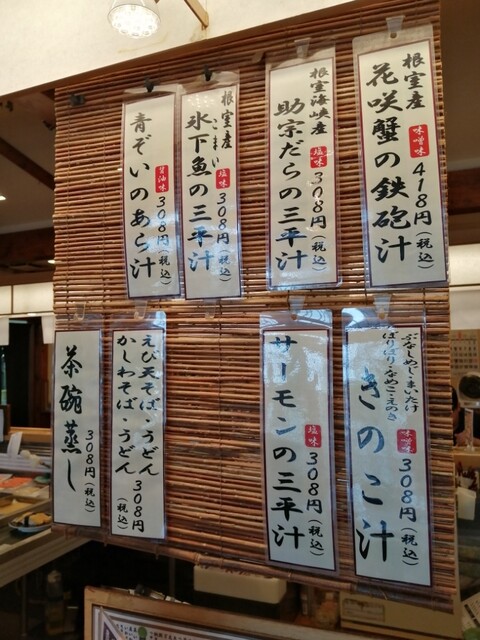 根室産
花咲蟹の鉄砲汁
味噌味
418円(税込)
根室海峡産
助宗だらの三平汁
塩味
308円(税込)
根室産
こまい
氷下魚の三平汁
塩味
308円(税込)
青ぞいのあら汁
醤油味
308円(税込)
ぶなしめじ・まいたけ
きのこ汁
味噌味
308円(税込)
サーモンの三平汁
塩味
308円(税込)
えび天そば・うどん
かしわそば・うどん
308円(税込)
茶碗蒸し
308円(税込)